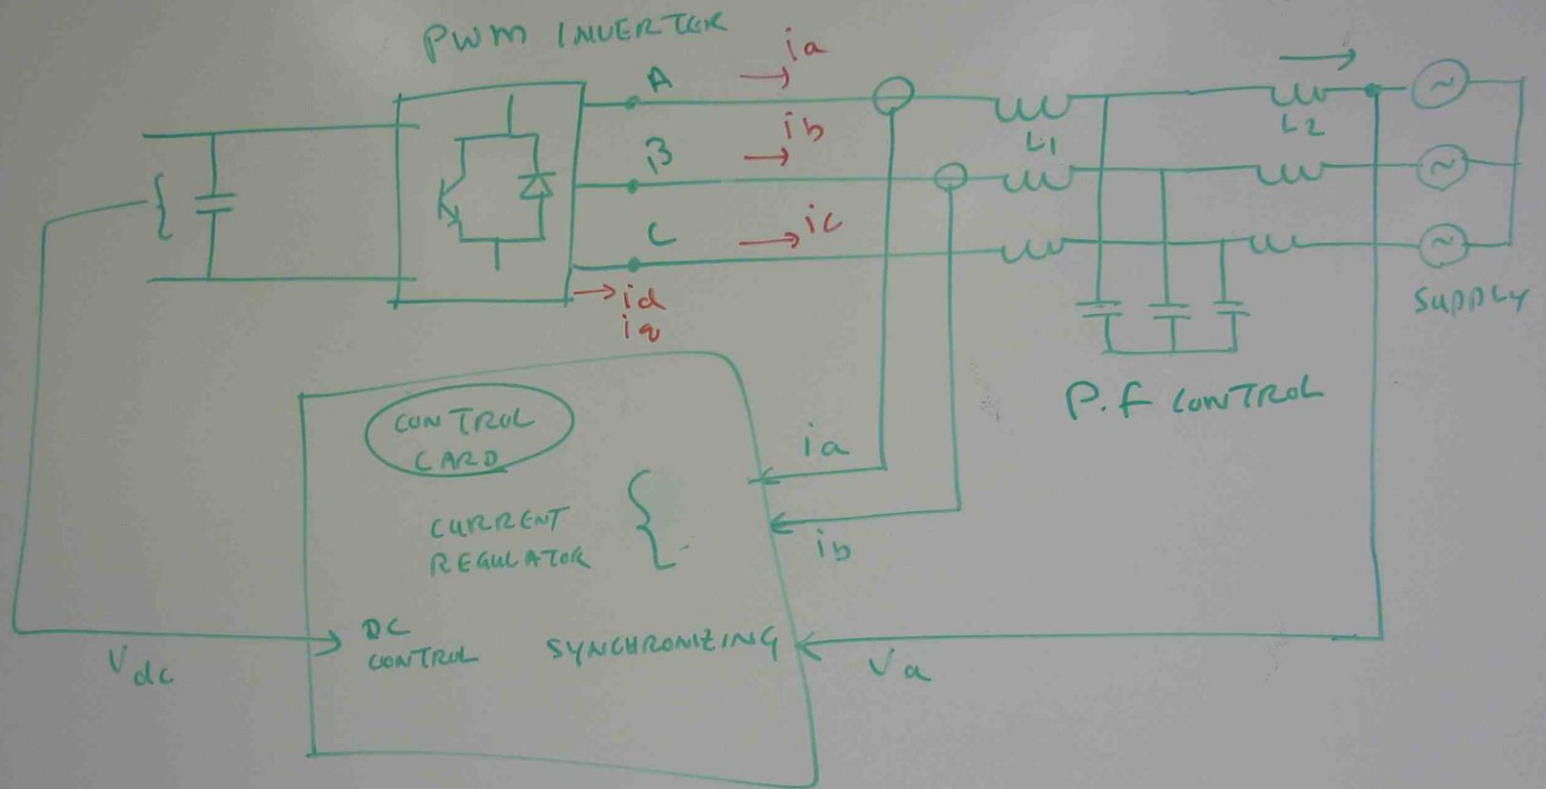 PWM INVERTER
A
ia
B
ib
C
ic
id
iq
L1
L2
SUPPLY
P.F CONTROL
CONTROL
CARD
CURRENT
REGULATOR
ia
ib
DC
CONTROL
SYNCHRONIZING
Vdc
Va